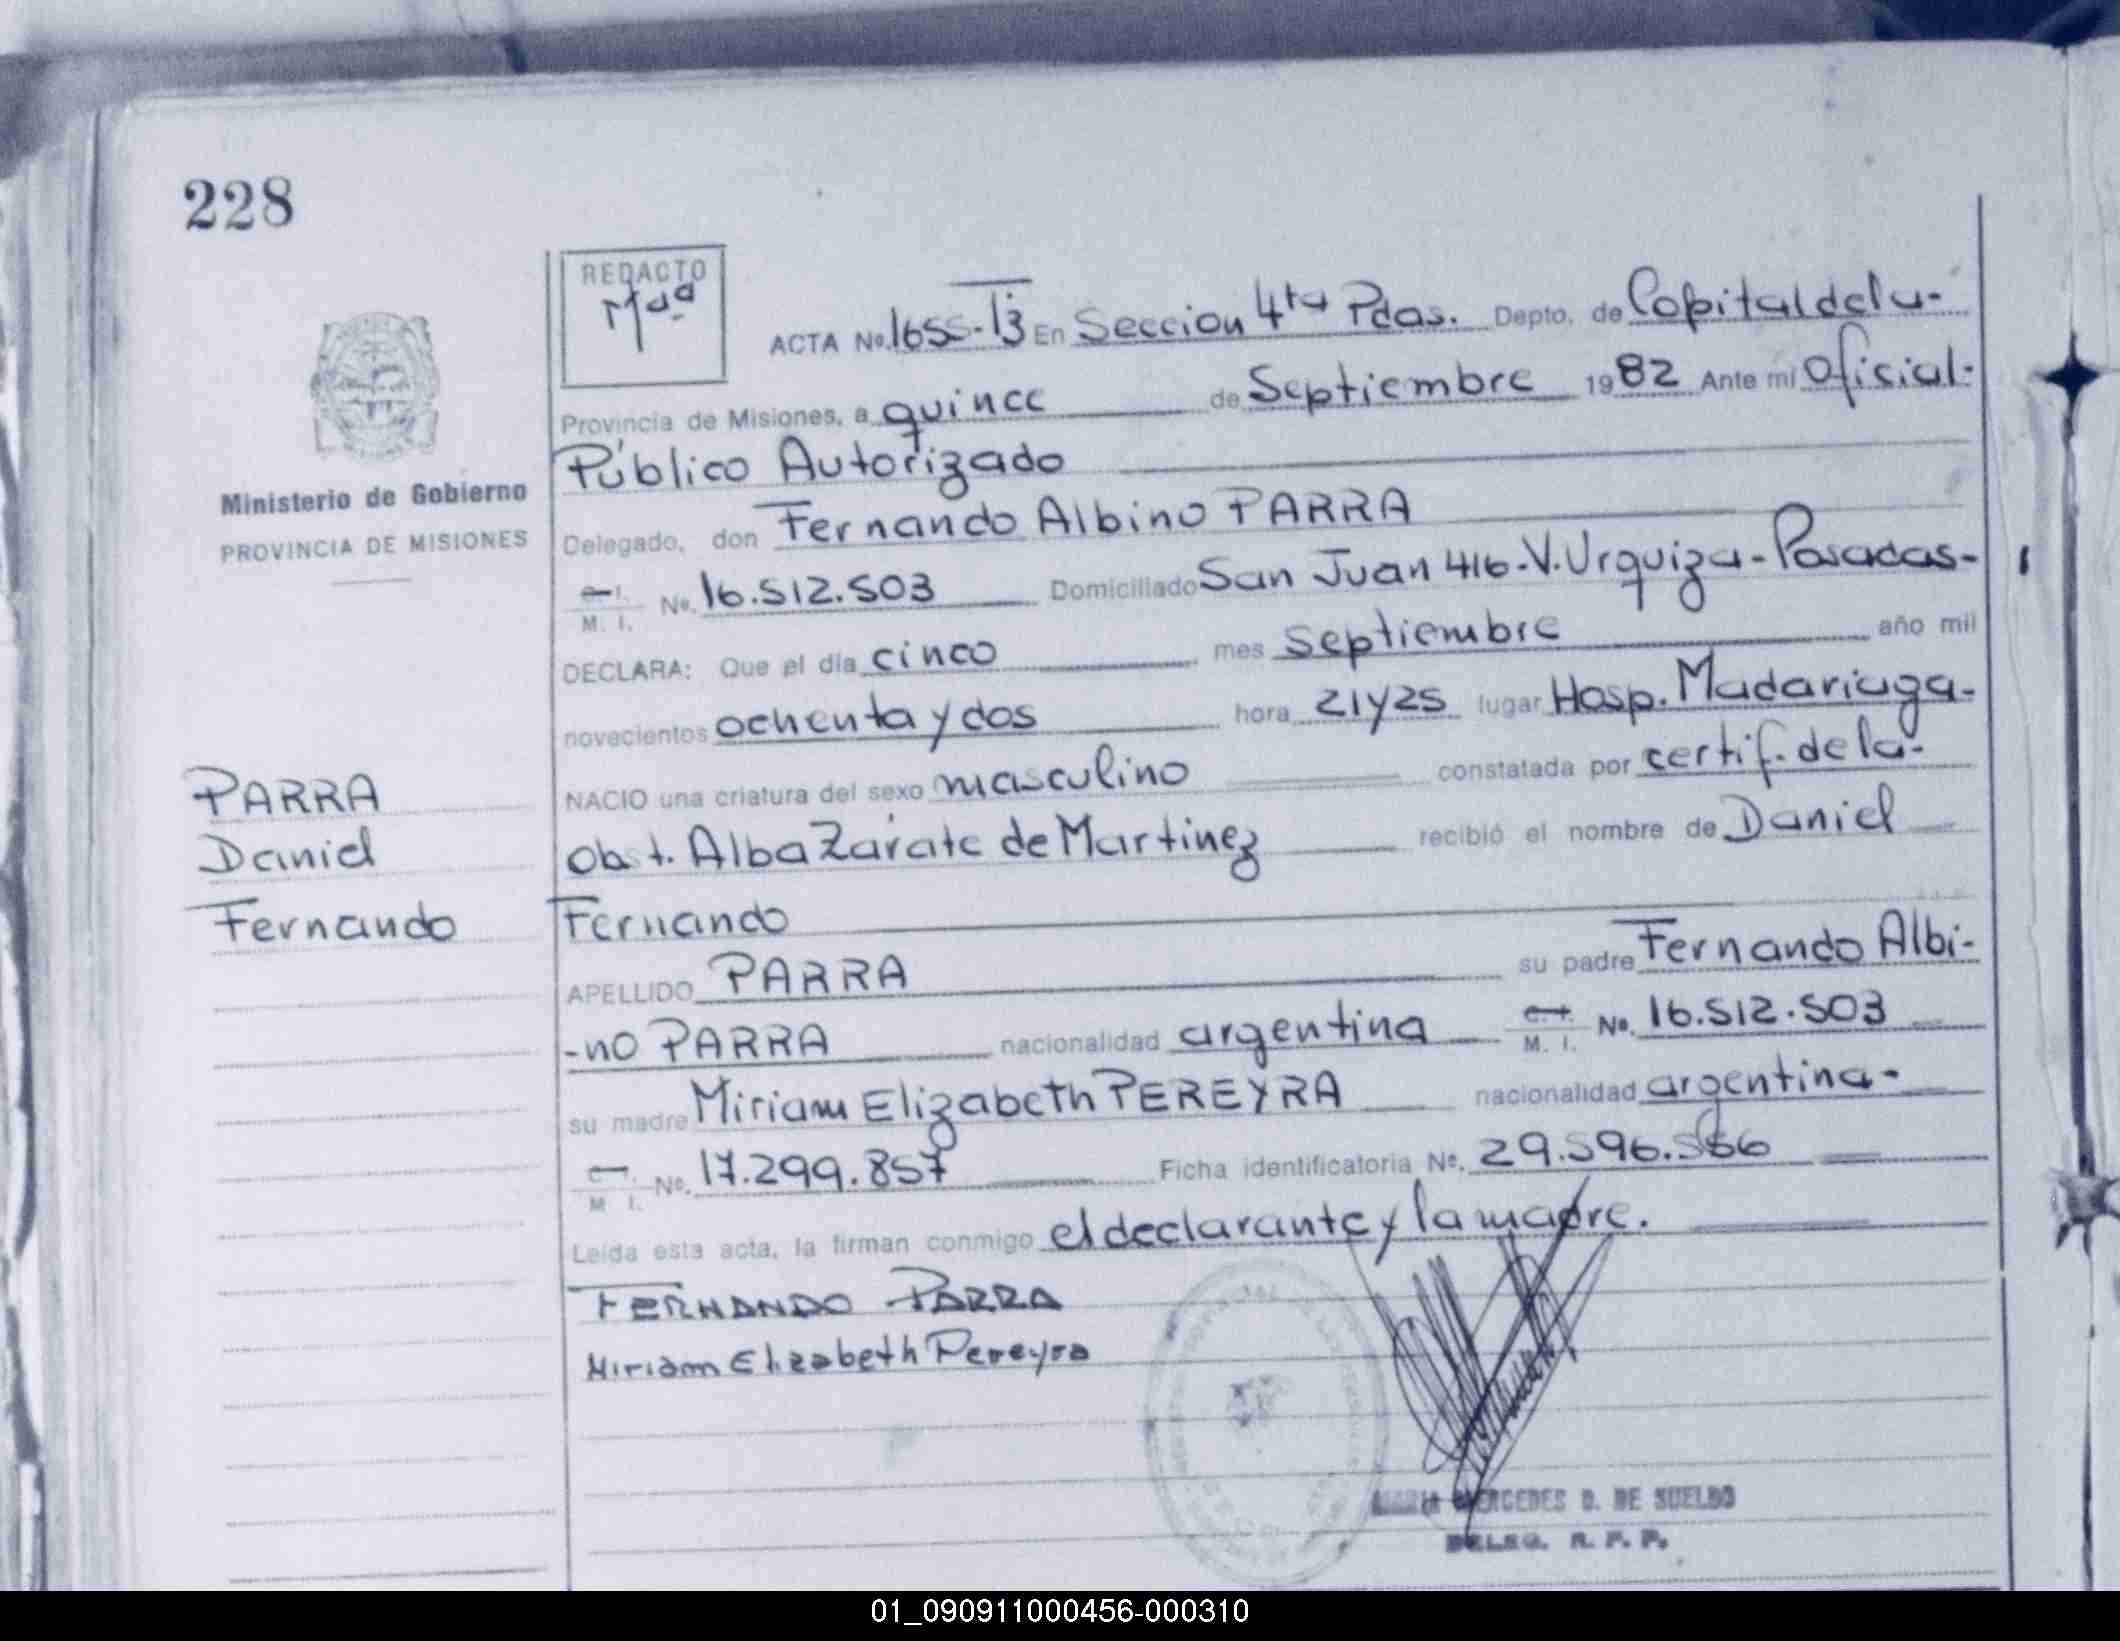 228
REDACTO
ACTA No. 1655-T3 En Seccion 4ta Pdas. Depto. de Capital de la-
Provincia de Misiones, a quince de Septiembre 1982 Ante mí Oficial-
Público Autorizado
Ministerio de Gobierno
PROVINCIA DE MISIONES
Delegado, don Fernando Albino PARRA
C. I. M. I. No. 16.512.503 Domiciliado San Juan 416-V.Urquiza-Posadas-
DECLARA: Que el día cinco mes Septiembre año mil
novecientos ochenta y dos hora 21y25 lugar Hosp. Madariaga-
NACIO una criatura del sexo masculino constatada por certif. de la-
obst. Alba Zárate de Martinez recibió el nombre de Daniel
Fernando
APELLIDO PARRA su padre Fernando Albi-
-no PARRA nacionalidad argentina C. I. M. I. No. 16.512.503
su madre Miriam Elizabeth PEREYRA nacionalidad argentina-
C. I. M. I. No. 17.299.857 Ficha identificatoria No. 29.596.566
Leída esta acta, la firman conmigo el declarante y la madre.
PARRA
Daniel
Fernando
FERNANDO PARRA
Miriam Elizabeth Pereyra
MARIA MERCEDES D. DE SUELDO
DELEG. R. P. P.
01_090911000456-000310